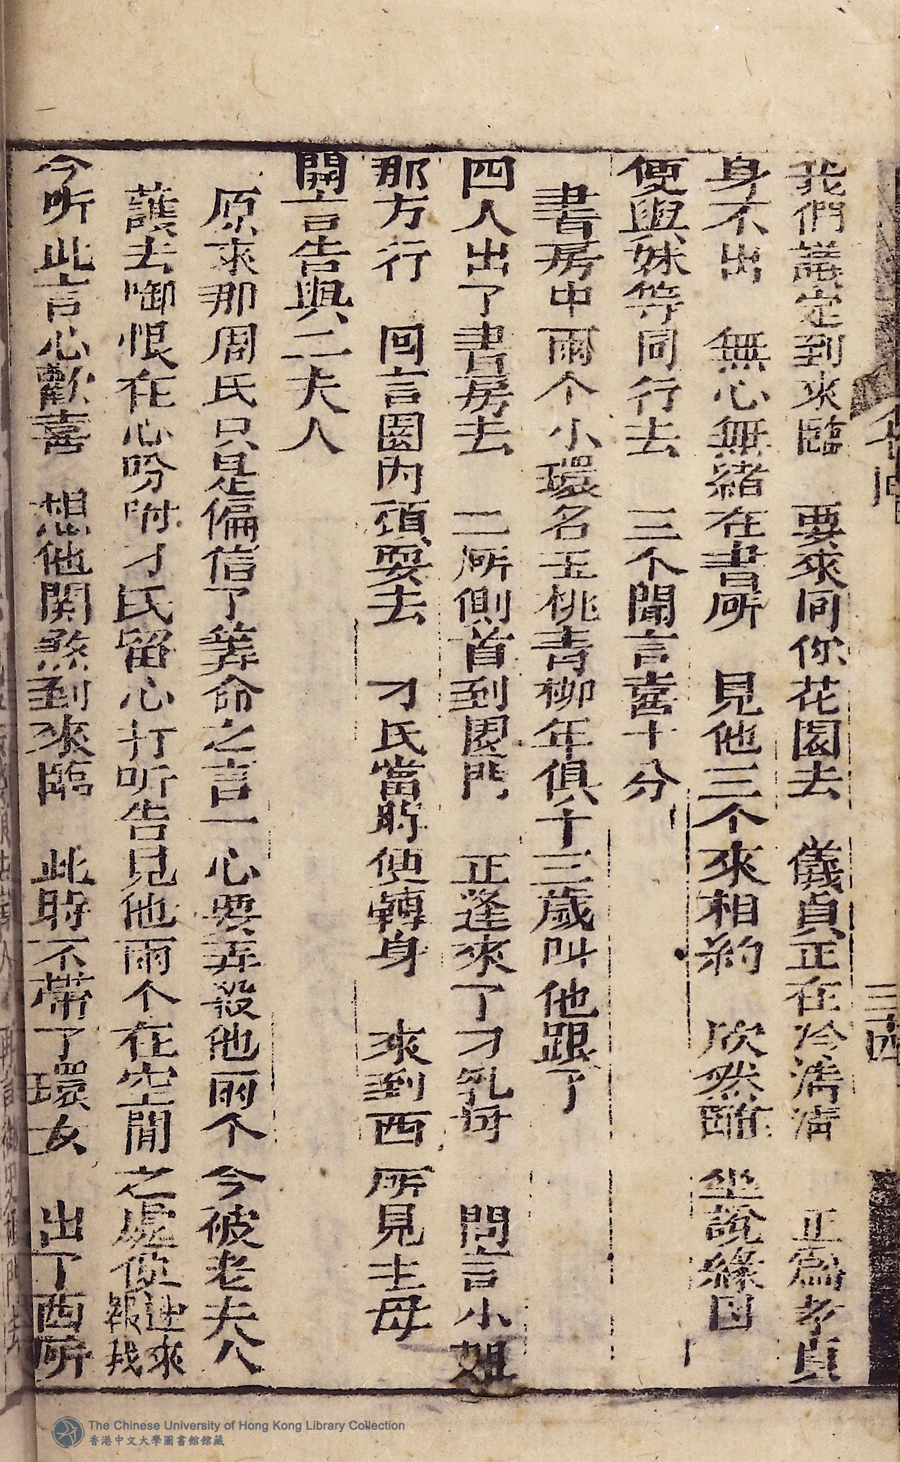 我們議定到來臨　要來同你花园去　儀貞正在冷清清　正為孝貞
身不出　無心無緒在書所　見他三个來相約　欣然離坐說緣因
便與妹等同行去　三个聞言喜十分
書房中兩个小環名玉桃青柳年俱十三歲叫他跟了
四人出了書房去　二所側首到园門　正逢來了刁乳母　問言小姐
那方行　回言園內頑耍去　刁氏當時便轉身　來到西所見主母
開言告與二夫人
原來那周氏只是偏信了筭命之言一心要弄殺他兩个今被老夫人
護去啣恨在心吩咐刁氏留心打听告見他兩个在空閒之處便進來報我
今听此言心歡喜　想他関煞到來臨　此時不帶了環女　出了西所
三四
The Chinese University of Hong Kong Library Collection
香港中文大學圖書館館藏